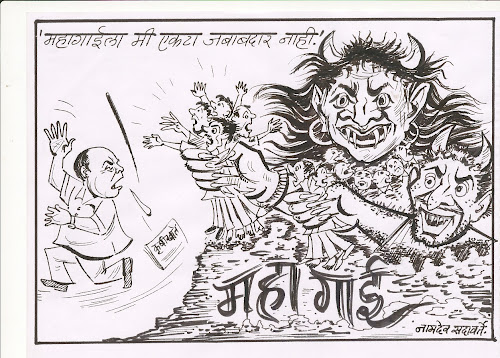 'महागाईला मी एकटा जबाबदार नाही.'
कृषीमंत्री
महागाई
नामदेव सदावर्ते.